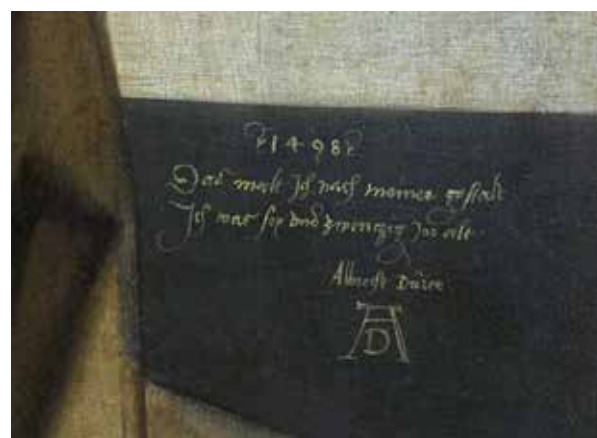 1498
Das malt Ich nach meiner gestalt
Ich war sex und zwenczig Jor alt
Albrecht Dürer
AD